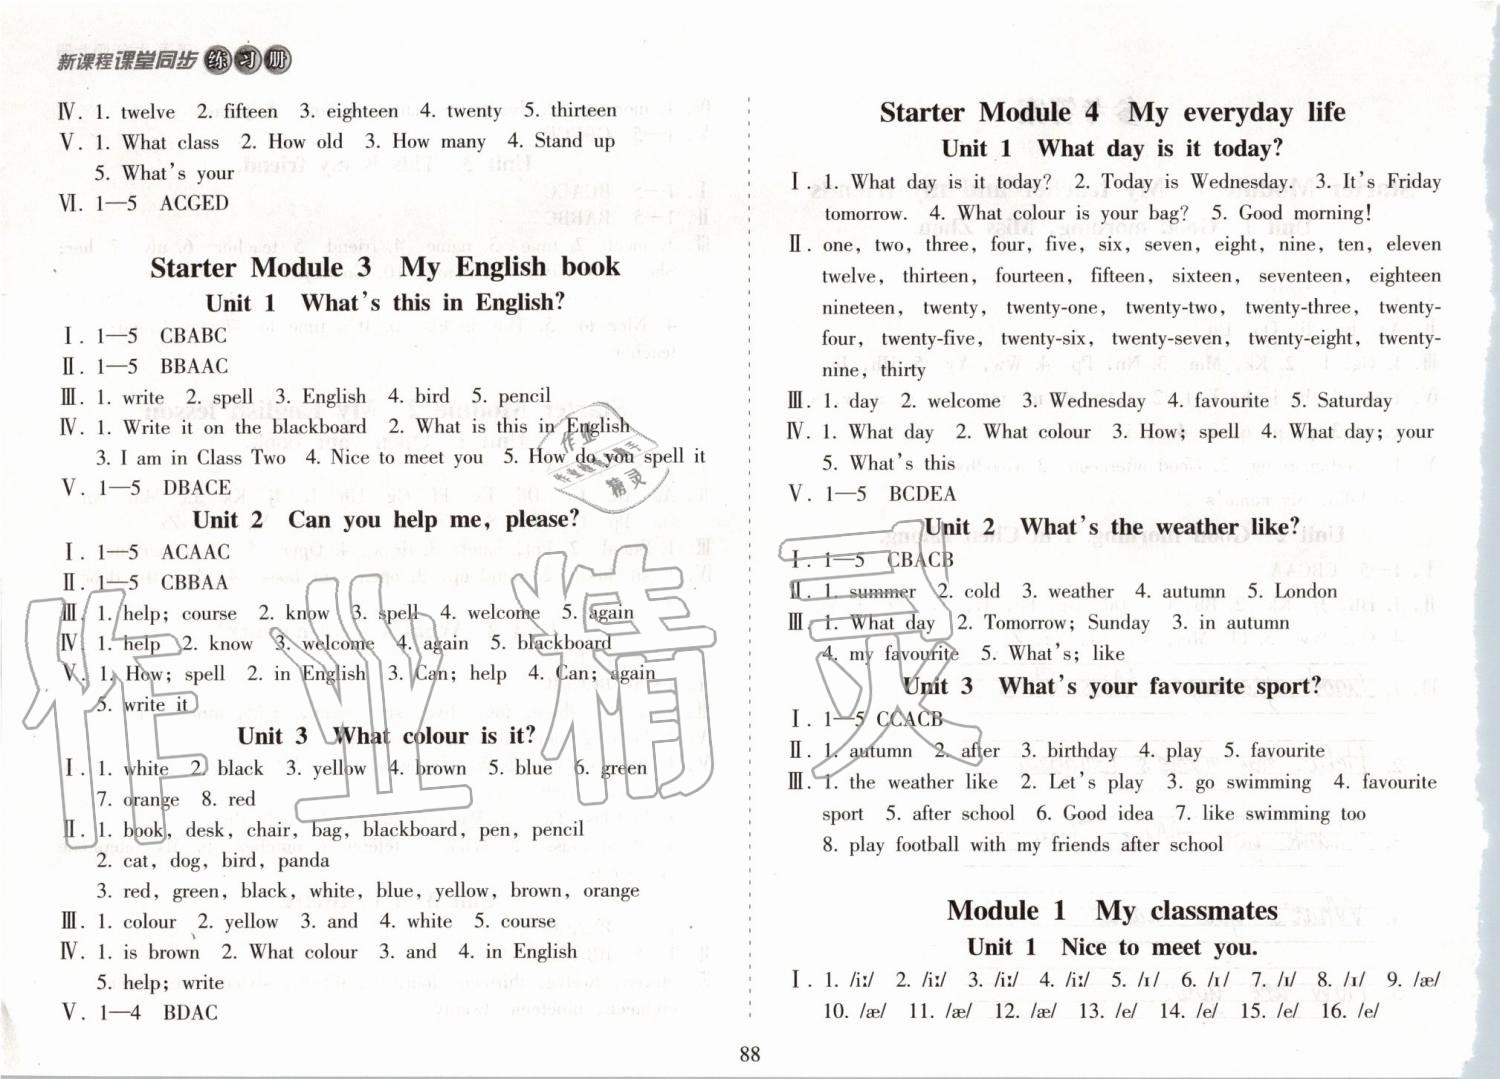 新课程课堂同步练习册
Ⅳ. 1. twelve 2. fifteen 3. eighteen 4. twenty 5. thirteen
Ⅴ. 1. What class 2. How old 3. How many 4. Stand up
5. What's your
Ⅵ. 1—5 ACGED
Starter Module 3 My English book
Unit 1 What's this in English?
Ⅰ. 1—5 CBABC
Ⅱ. 1—5 BBAAC
Ⅲ. 1. write 2. spell 3. English 4. bird 5. pencil
Ⅳ. 1. Write it on the blackboard 2. What is this in English
3. I am in Class Two 4. Nice to meet you 5. How do you spell it
Ⅴ. 1—5 DBACE
Unit 2 Can you help me, please?
Ⅰ. 1—5 ACAAC
Ⅱ. 1—5 CBBAA
Ⅲ. 1. help; course 2. know 3. spell 4. welcome 5. again
Ⅳ. 1. help 2. know 3. welcome 4. again 5. blackboard
Ⅴ. 1. How; spell 2. in English 3. Can; help 4. Can; again
5. write it
Unit 3 What colour is it?
Ⅰ. 1. white 2. black 3. yellow 4. brown 5. blue 6. green
7. orange 8. red
Ⅱ. 1. book, desk, chair, bag, blackboard, pen, pencil
2. cat, dog, bird, panda
3. red, green, black, white, blue, yellow, brown, orange
Ⅲ. 1. colour 2. yellow 3. and 4. white 5. course
Ⅳ. 1. is brown 2. What colour 3. and 4. in English
5. help; write
Ⅴ. 1—4 BDAC
Starter Module 4 My everyday life
Unit 1 What day is it today?
Ⅰ. 1. What day is it today? 2. Today is Wednesday. 3. It's Friday
tomorrow. 4. What colour is your bag? 5. Good morning!
Ⅱ. one, two, three, four, five, six, seven, eight, nine, ten, eleven
twelve, thirteen, fourteen, fifteen, sixteen, seventeen, eighteen
nineteen, twenty, twenty-one, twenty-two, twenty-three, twenty-
four, twenty-five, twenty-six, twenty-seven, twenty-eight, twenty-
nine, thirty
Ⅲ. 1. day 2. welcome 3. Wednesday 4. favourite 5. Saturday
Ⅳ. 1. What day 2. What colour 3. How; spell 4. What day; your
5. What's this
Ⅴ. 1—5 BCDEA
Unit 2 What's the weather like?
Ⅰ. 1—5 CBACB
Ⅱ. 1. summer 2. cold 3. weather 4. autumn 5. London
Ⅲ. 1. What day 2. Tomorrow; Sunday 3. in autumn
4. my favourite 5. What's; like
Unit 3 What's your favourite sport?
Ⅰ. 1—5 CCACB
Ⅱ. 1. autumn 2. after 3. birthday 4. play 5. favourite
Ⅲ. 1. the weather like 2. Let's play 3. go swimming 4. favourite
sport 5. after school 6. Good idea 7. like swimming too
8. play football with my friends after school
Module 1 My classmates
Unit 1 Nice to meet you.
Ⅰ. 1. /iː/ 2. /iː/ 3. /iː/ 4. /iː/ 5. /ɪ/ 6. /ɪ/ 7. /ɪ/ 8. /ɪ/ 9. /æ/
10. /æ/ 11. /æ/ 12. /æ/ 13. /e/ 14. /e/ 15. /e/ 16. /e/
88
作业精灵
作业
精灵